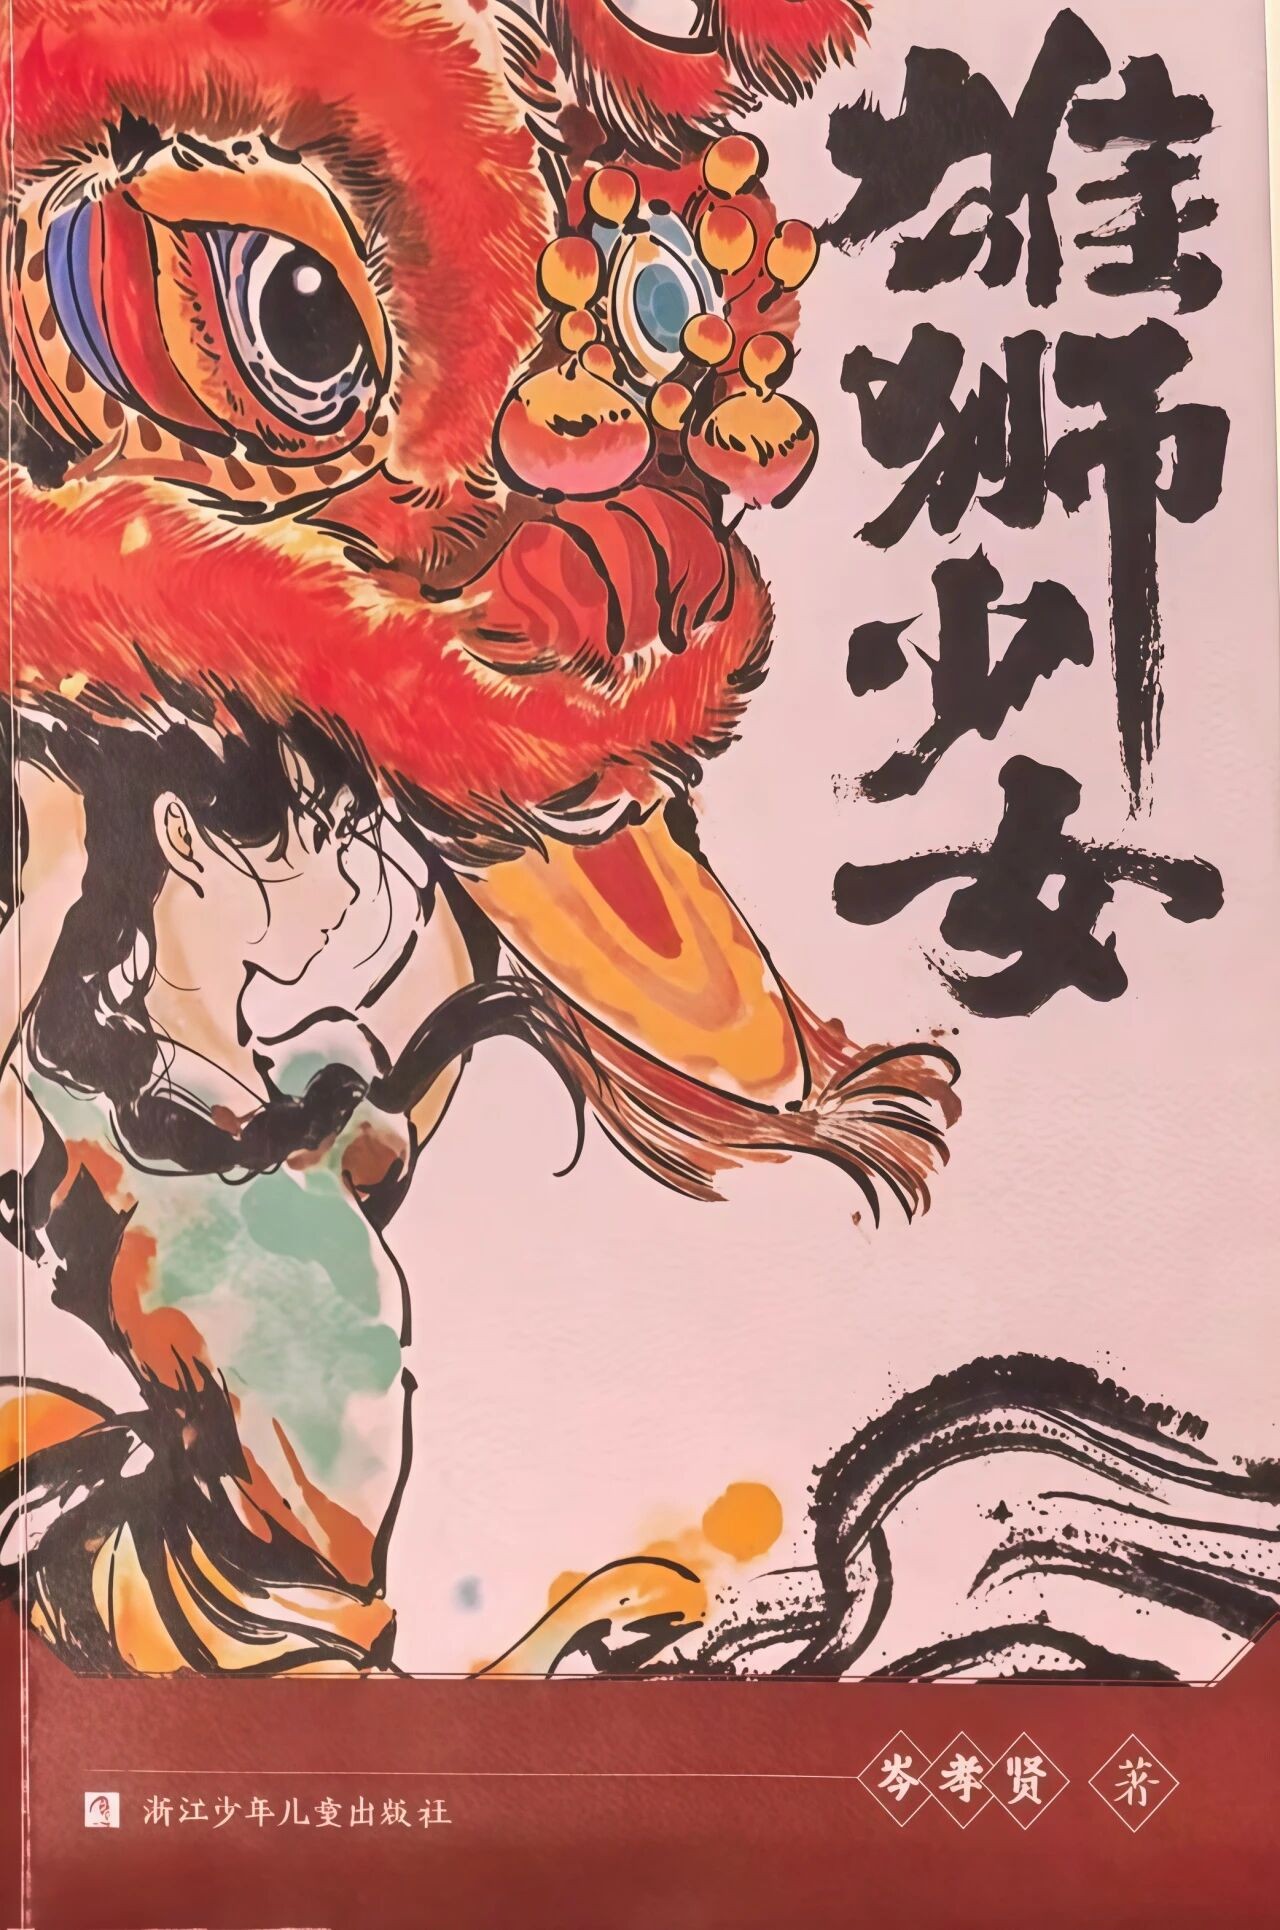 雄狮少女
岑孝贤 著
浙江少年儿童出版社